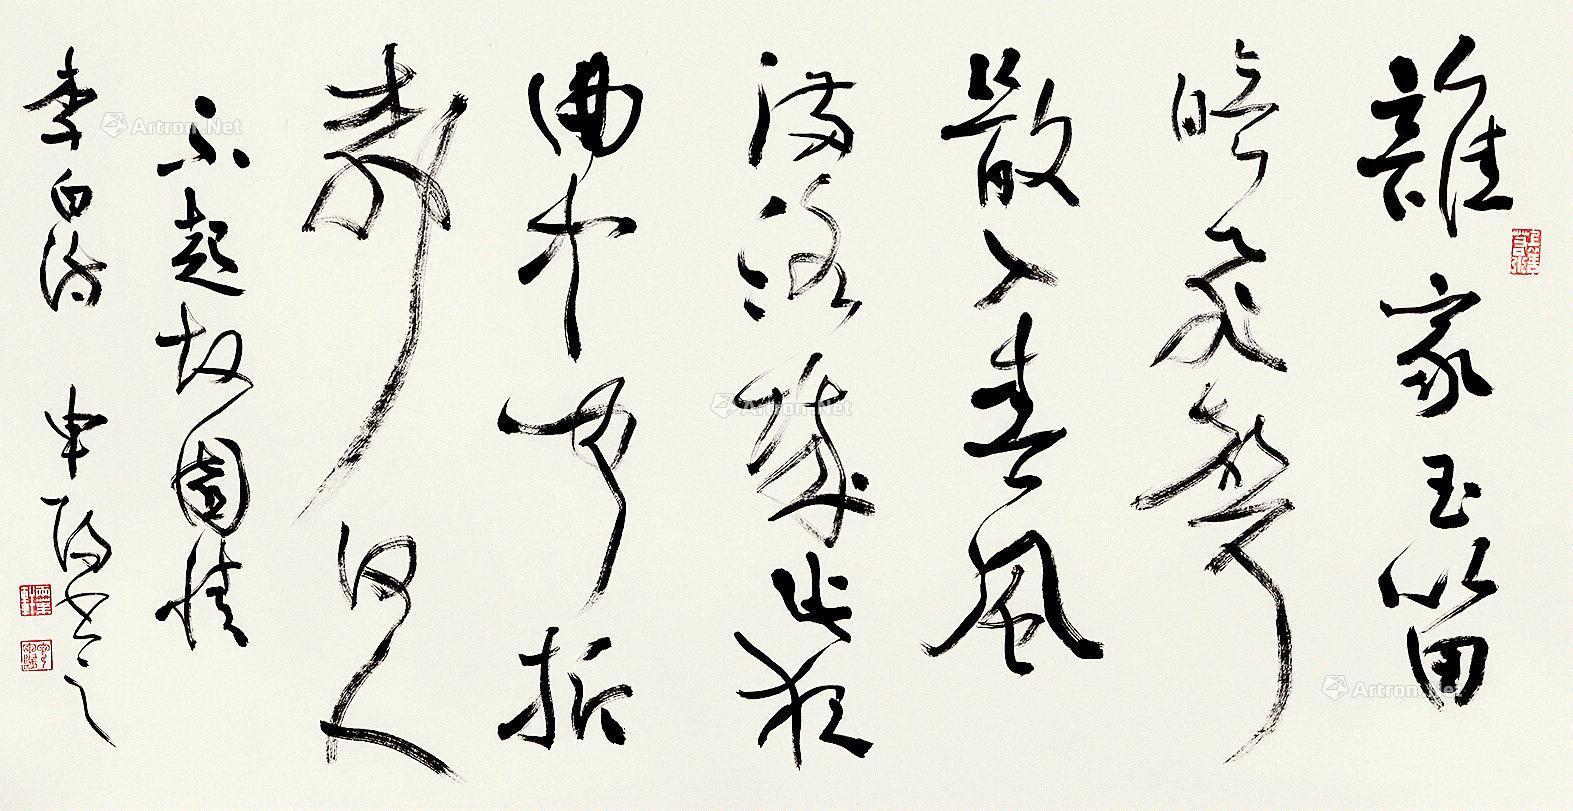 誰家玉笛
暗飛聲
散入春風
满洛城此夜
曲中聞折
柳何人
不起故園情
李白詩 申 書之
Artron.Net
Artron.Net
Artron.Net